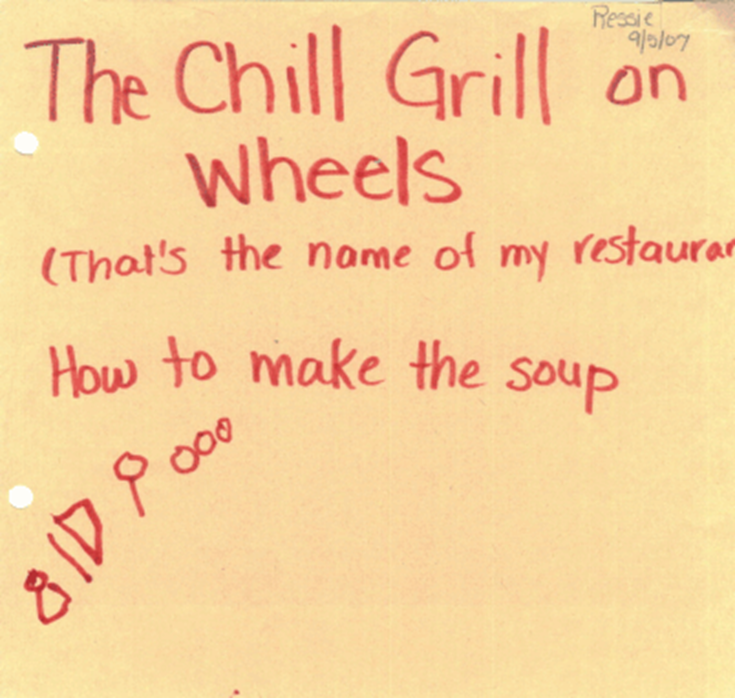 Ressie
9/5/07
The Chill Grill on
Wheels
(That's the name of my restauran
How to make the soup
8 1 D 9 000